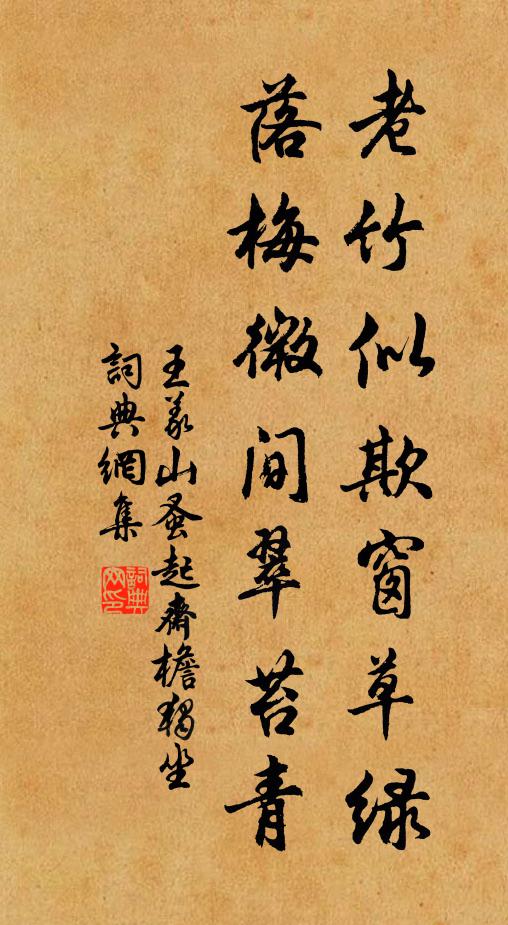 老竹似欺窗草绿
落梅微间翠苔青
王义山蚤起斋檐独坐
詞典網集
詞典网印